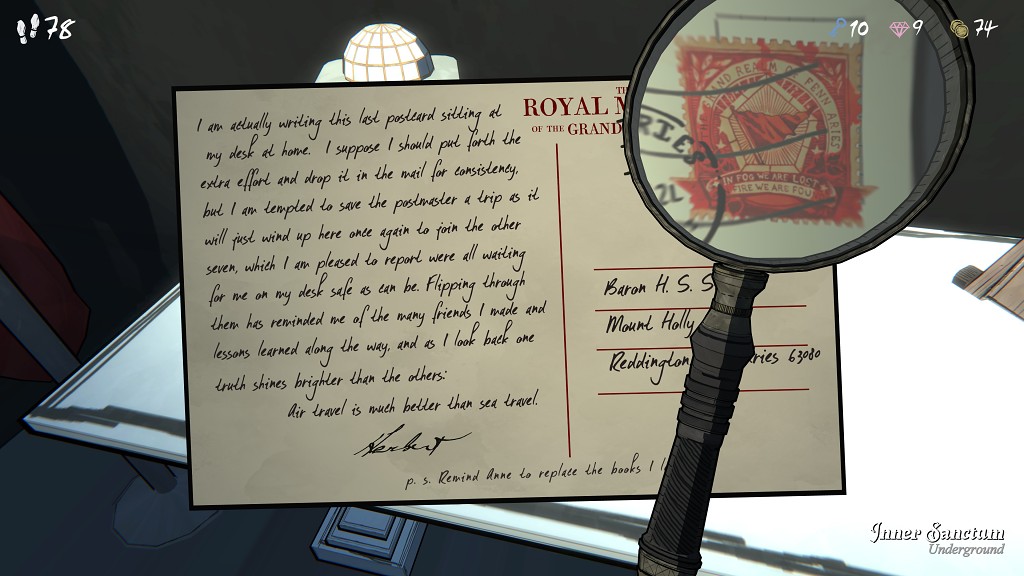 78
10
9
74
I am actually writing this last postcard sitting at
my desk at home. I suppose I should put forth the
extra effort and drop it in the mail for consistency,
but I am tempted to save the postmaster a trip as it
will just wind up here once again to join the other
seven, which I am pleased to report were all waiting
for me on my desk safe as can be. Flipping through
them has reminded me of the many friends I made and
lessons learned along the way, and as I look back one
truth shines brighter than the others:
Air travel is much better than sea travel.
Herbert
p. s. Remind Anne to replace the books I
ROYAL
OF THE GRAND
REALM OF FENN ARIES
IN FOG WE ARE LOST
FIRE WE ARE FOU
RIES
Baron H. S. S
Mount Holly
Reddington
ries 63080
Inner Sanctum
Underground